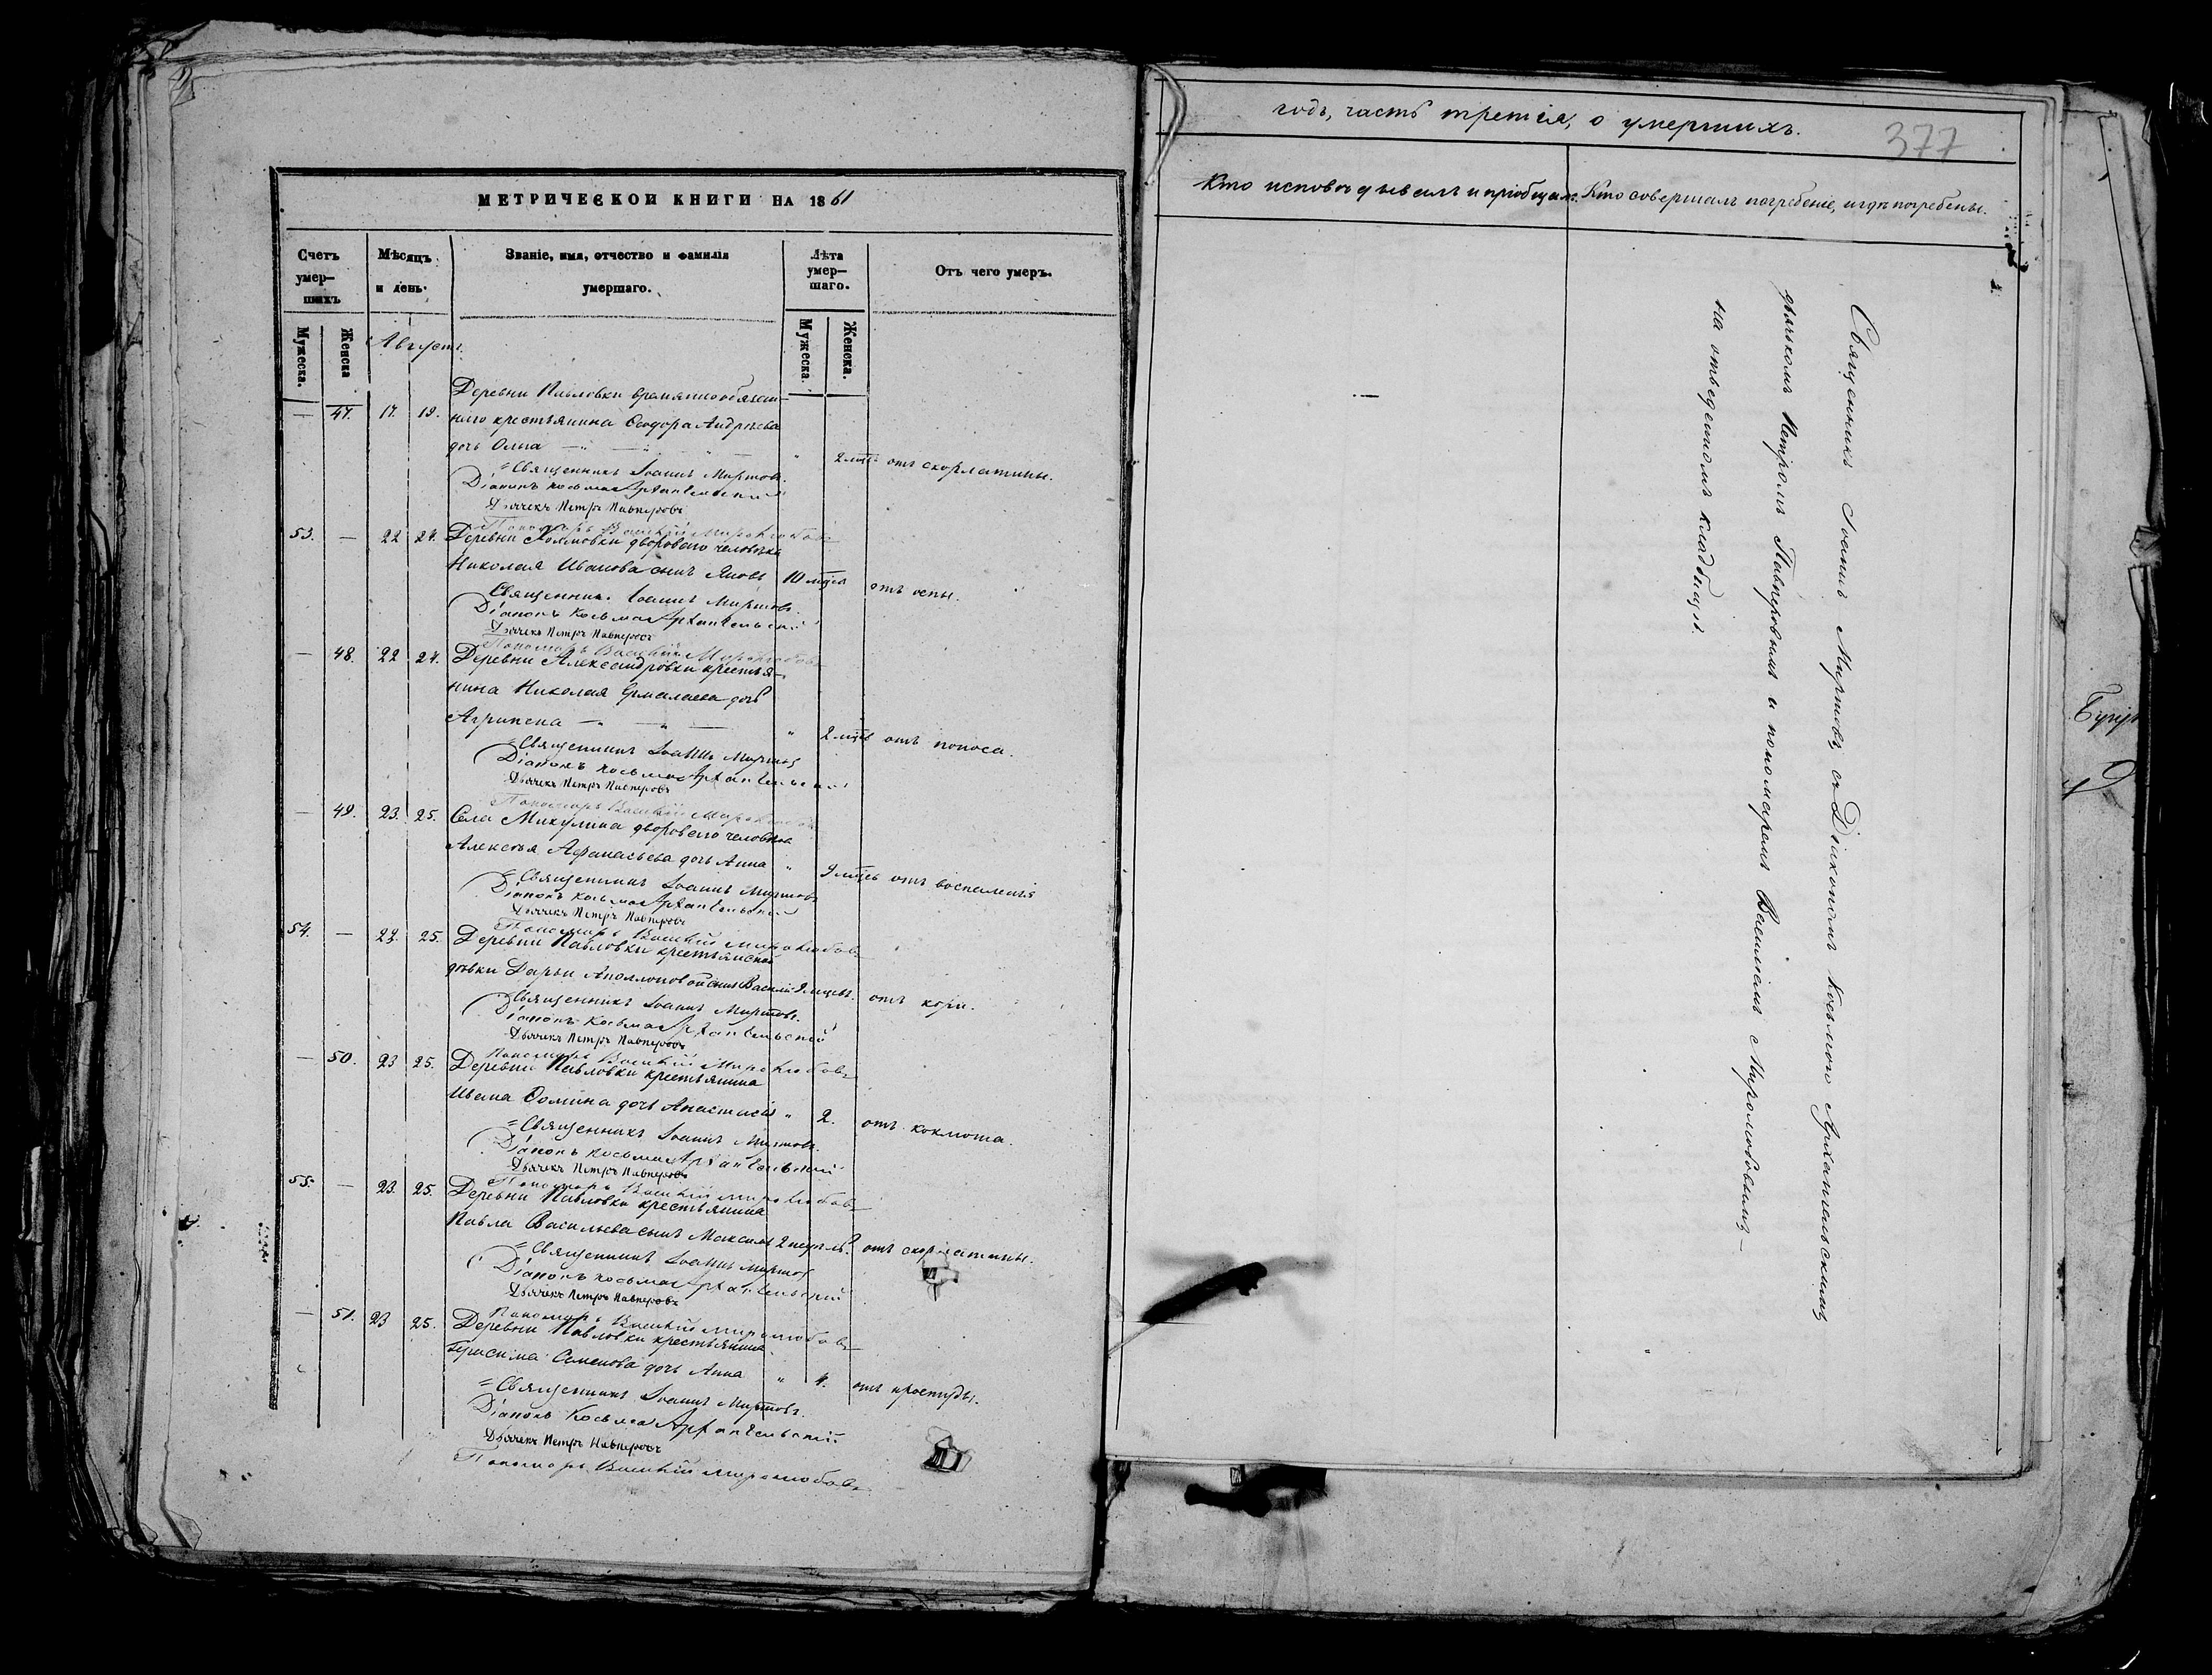 МЕТРИЧЕСКОЙ КНИГИ НА 1861
Счетъ умер-шихъ
Мѣсяцъ и день.
Званіе, имя, отчество и фамилія умершаго.
Лѣта умер-шаго.
Отъ чего умеръ.
Мужеска. Женска
Мужеска. Женска.
Августъ.
Деревни Павловки временнообязан-
— 47. 17. 19. наго крестьянина Ѳеодора Андрѣева
дочь Ольга — " 2 мѣс. отъ скорлатины.
Священникъ Іоаннъ Миртовъ.
Діаконъ Косьма Архангельскій
Дьячекъ Петръ Павперовъ
Пономарь Василій Миролюбовъ
53. — 22 24. Деревни дворового человѣка
Николая Иванова сынъ Яковъ 10 мѣсяц. отъ оспы.
Священник. Іоаннъ Миртовъ.
Діаконъ Косьма Архангельскій
Дьячекъ Петръ Павперовъ
Пономарь Василій Миролюбовъ
— 48. 22 24. Деревни Александровки крестья-
нина Николая Ермалаева дочь
Агрипена — " — " 2 мѣс. отъ поноса.
Священникъ Іоаннъ Миртов
Діаконъ Косьма Архангельскій
Дьячекъ Петръ Павперовъ
Пономарь Василій Миролюбовъ
— 49. 23. 25. Села Микулина дворового человѣка
Алексѣя Афанасьева дочь Анна " 9 мѣсяц. отъ воспаленія
Священникъ Іоаннъ Миртовъ
Діаконъ Косьма Архангельскій
Дьячекъ Петръ Павперовъ
Пономарь Василій Миролюбовъ
54. — 25. Деревни Павловки крестьянской
дѣвки Дарьи Аполлоновой сынъ Василій 9 мѣсяц. отъ кори.
Священникъ Іоаннъ Миртовъ.
Діаконъ Косьма Архангельскій
Дьячекъ Петръ Павперовъ
Пономарь Василій Миролюбовъ
— 50. 23 25. Деревни Павловки крестьянина
Ивана Ѳомина дочь Анастасія " 2. отъ коклюша.
Священникъ Іоаннъ Миртовъ.
Діаконъ Косьма Архангельскій
Дьячекъ Петръ Павперовъ
Пономарь Василій Миролюбовъ
55. — 23. 25. Деревни Павловки крестьянина
Павла Васильева сынъ Максимъ 2 недѣль. отъ скорлатины.
Священникъ Іоаннъ Миртов
Діаконъ Косьма Архангельскій
Дьячекъ Петръ Павперовъ
Пономарь Василій Миролюбовъ
— 51. 23 25. Деревни Павловки крестьянина
Герасима Семенова дочь Анна " 4. отъ простуды.
Священникъ Іоаннъ Миртовъ.
Діаконъ Косьма Архангельскій
Дьячекъ Петръ Павперовъ
Пономарь Василій Миролюбовъ
годъ, часть третія, о умершихъ.
377
Кто исповѣдывалъ и пріобщалъ.
Кто совершалъ погребеніе, и гдѣ погребены.
Священникъ Іоаннъ Миртовъ, съ Діакономъ Косьмою Архангельскимъ,
дьячкомъ Петромъ Павперовымъ и пономаремъ Василіемъ Миролюбовымъ
на отведенномъ кладбищѣ.